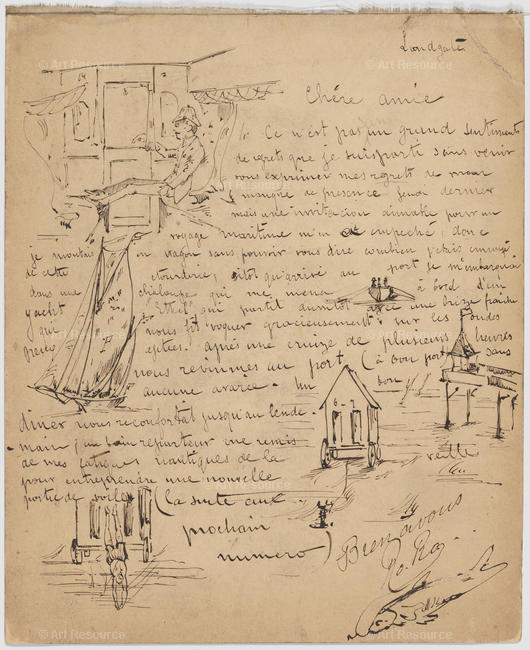 Chère amie
Ce n'est pas un grand sentiment
de regrets que je suis parti sans venir
vous exprimer mes regrets de mon
manque de presence jeudi dernier
mais une invitation aimable pour un
voyage maritime m'en a empeché; donc
je montais en wagon sans pouvoir vous dire combien j'etais ennuyé
de cette etourderie; sitot qu'arrivé au port je m'embarquai
dans une chaloupe qui me mena à bord d'un
yacht qui partit aussitot avec une brize fraiche
qui nous fit voguer gracieusement sur les ondes
apres une cruize de plusieurs heures
nous revinmes au port (à bon port) sans
aucune avarie. Un bon
diner nous reconfortat jusqu'au lende-
main; un bain reparateur me remis
de mes fatigues nautiques de la veille
pour entreprendre une nouvelle
partie de voile (la suite au
prochain
numero)
Bien a vous
© Art Resource